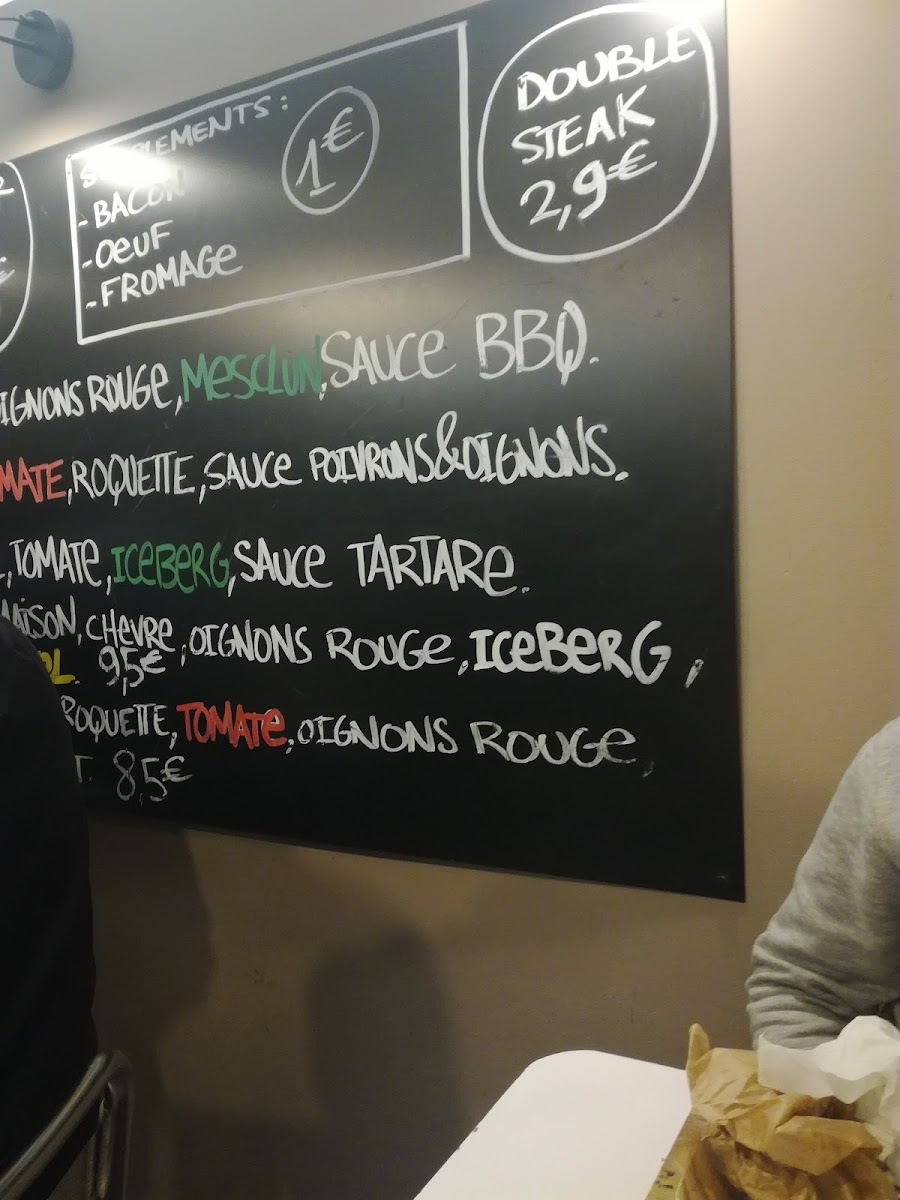 SUPPLEMENTS:
- BACON
- OEUF
- FROMAGE
1€
DOUBLE
STEAK
2,9€
OIGNONS ROUGE, MESCLUN, SAUCE BBQ.
ROQUETTE, SAUCE POIVRONS & OIGNONS.
, TOMATE, ICEBERG, SAUCE TARTARE.
MAISON, CHEVRE, OIGNONS ROUGE, ICEBERG,
9,5€
ROQUETTE, TOMATE, OIGNONS ROUGE,
8,5€